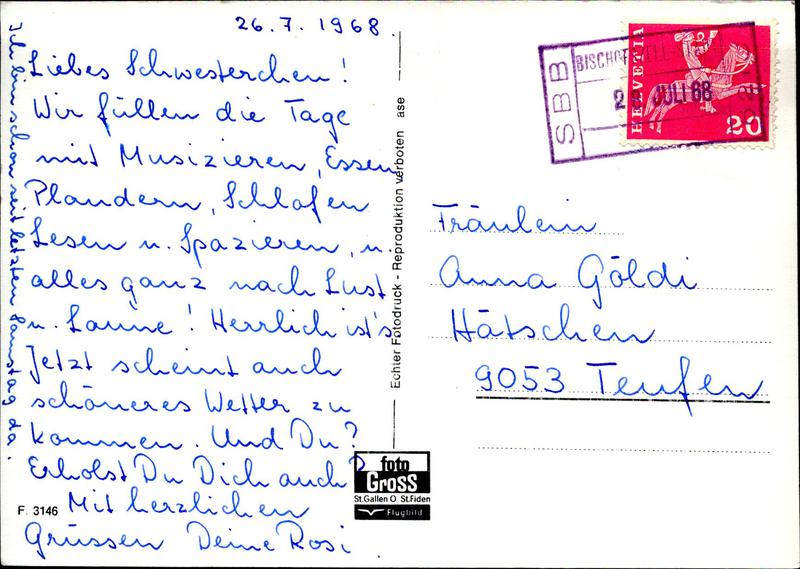 26.7.1968.
Liebes Schwesterchen!
Wir füllen die Tage
mit Musizieren, Essen
Plaudern, Schlafen
Lesen u. Spazieren, u.
alles ganz nach Lust
u. Laune! Herrlich ist's
Jetzt scheint auch
schöneres Wetter zu
kommen. Und Du?
Erholst Du Dich auch?
Mit herzlichen
Grüssen Deine Rosi
Ich bin schon seit letzten Samstag da.
F. 3146
Echter Fotodruck - Reproduktion verboten ase
foto
Gross
St.Gallen O St.Fiden
Flugbild
SBB
BISCHOFSZELL
JULI 68
HELVETIA
20
Fräulein
Anna Göldi
Hätschen
9053 Teufen